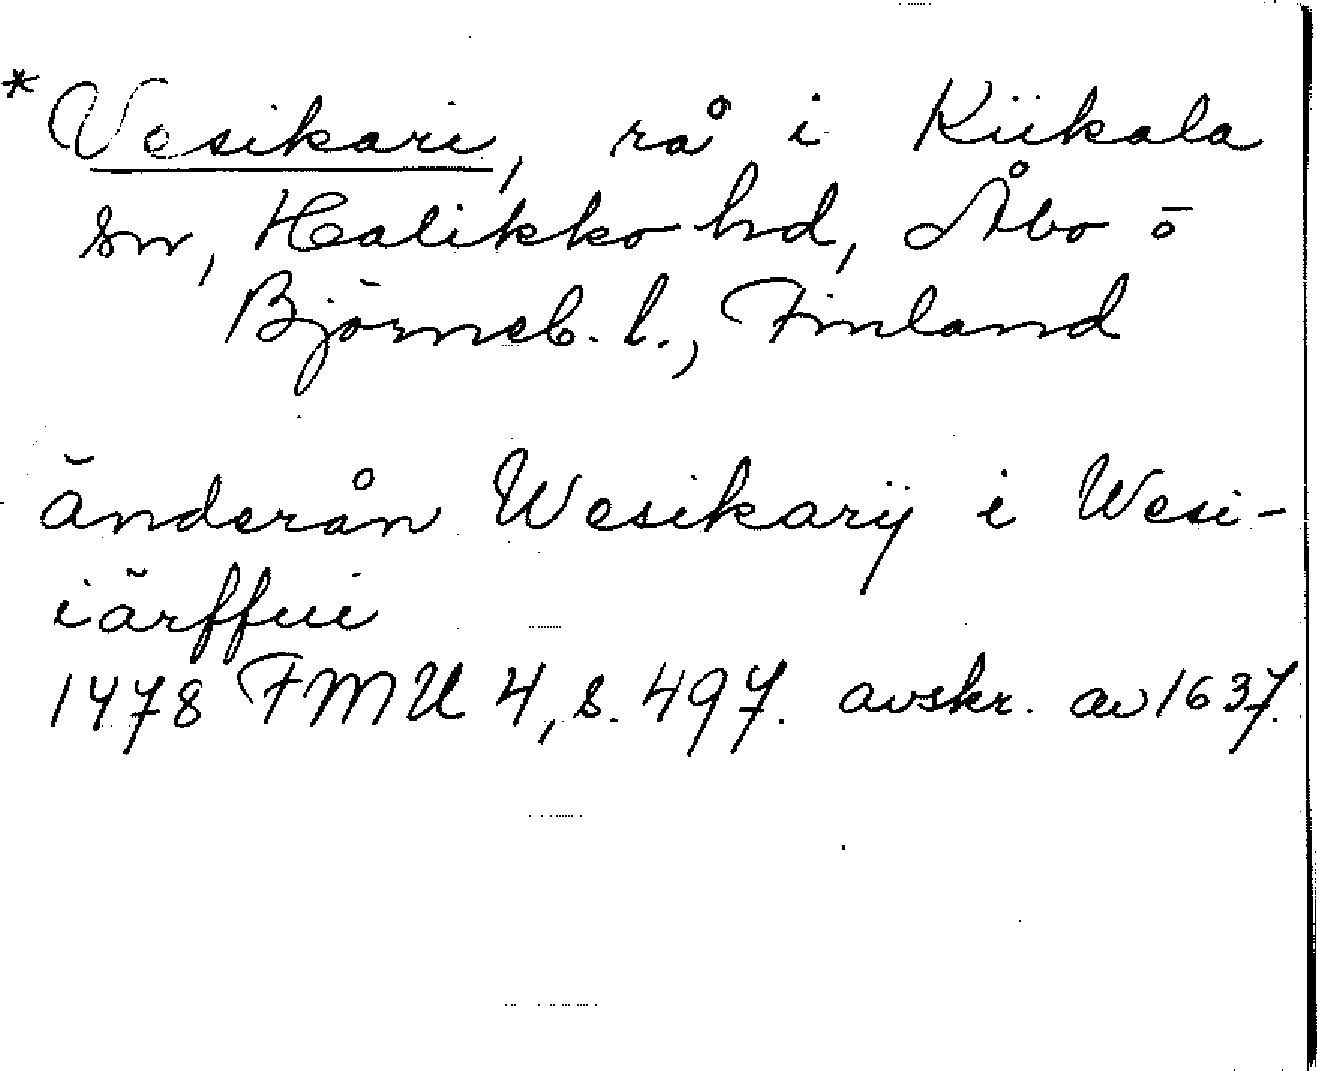 *Vesikari, rå i Kiikala
sn, Halikko hd, Åbo o
Björneb. l., Finland
änderån Wesikarij i Wesi-
iärffui
1478 FMU 4, s. 497. avskr. av 1637.